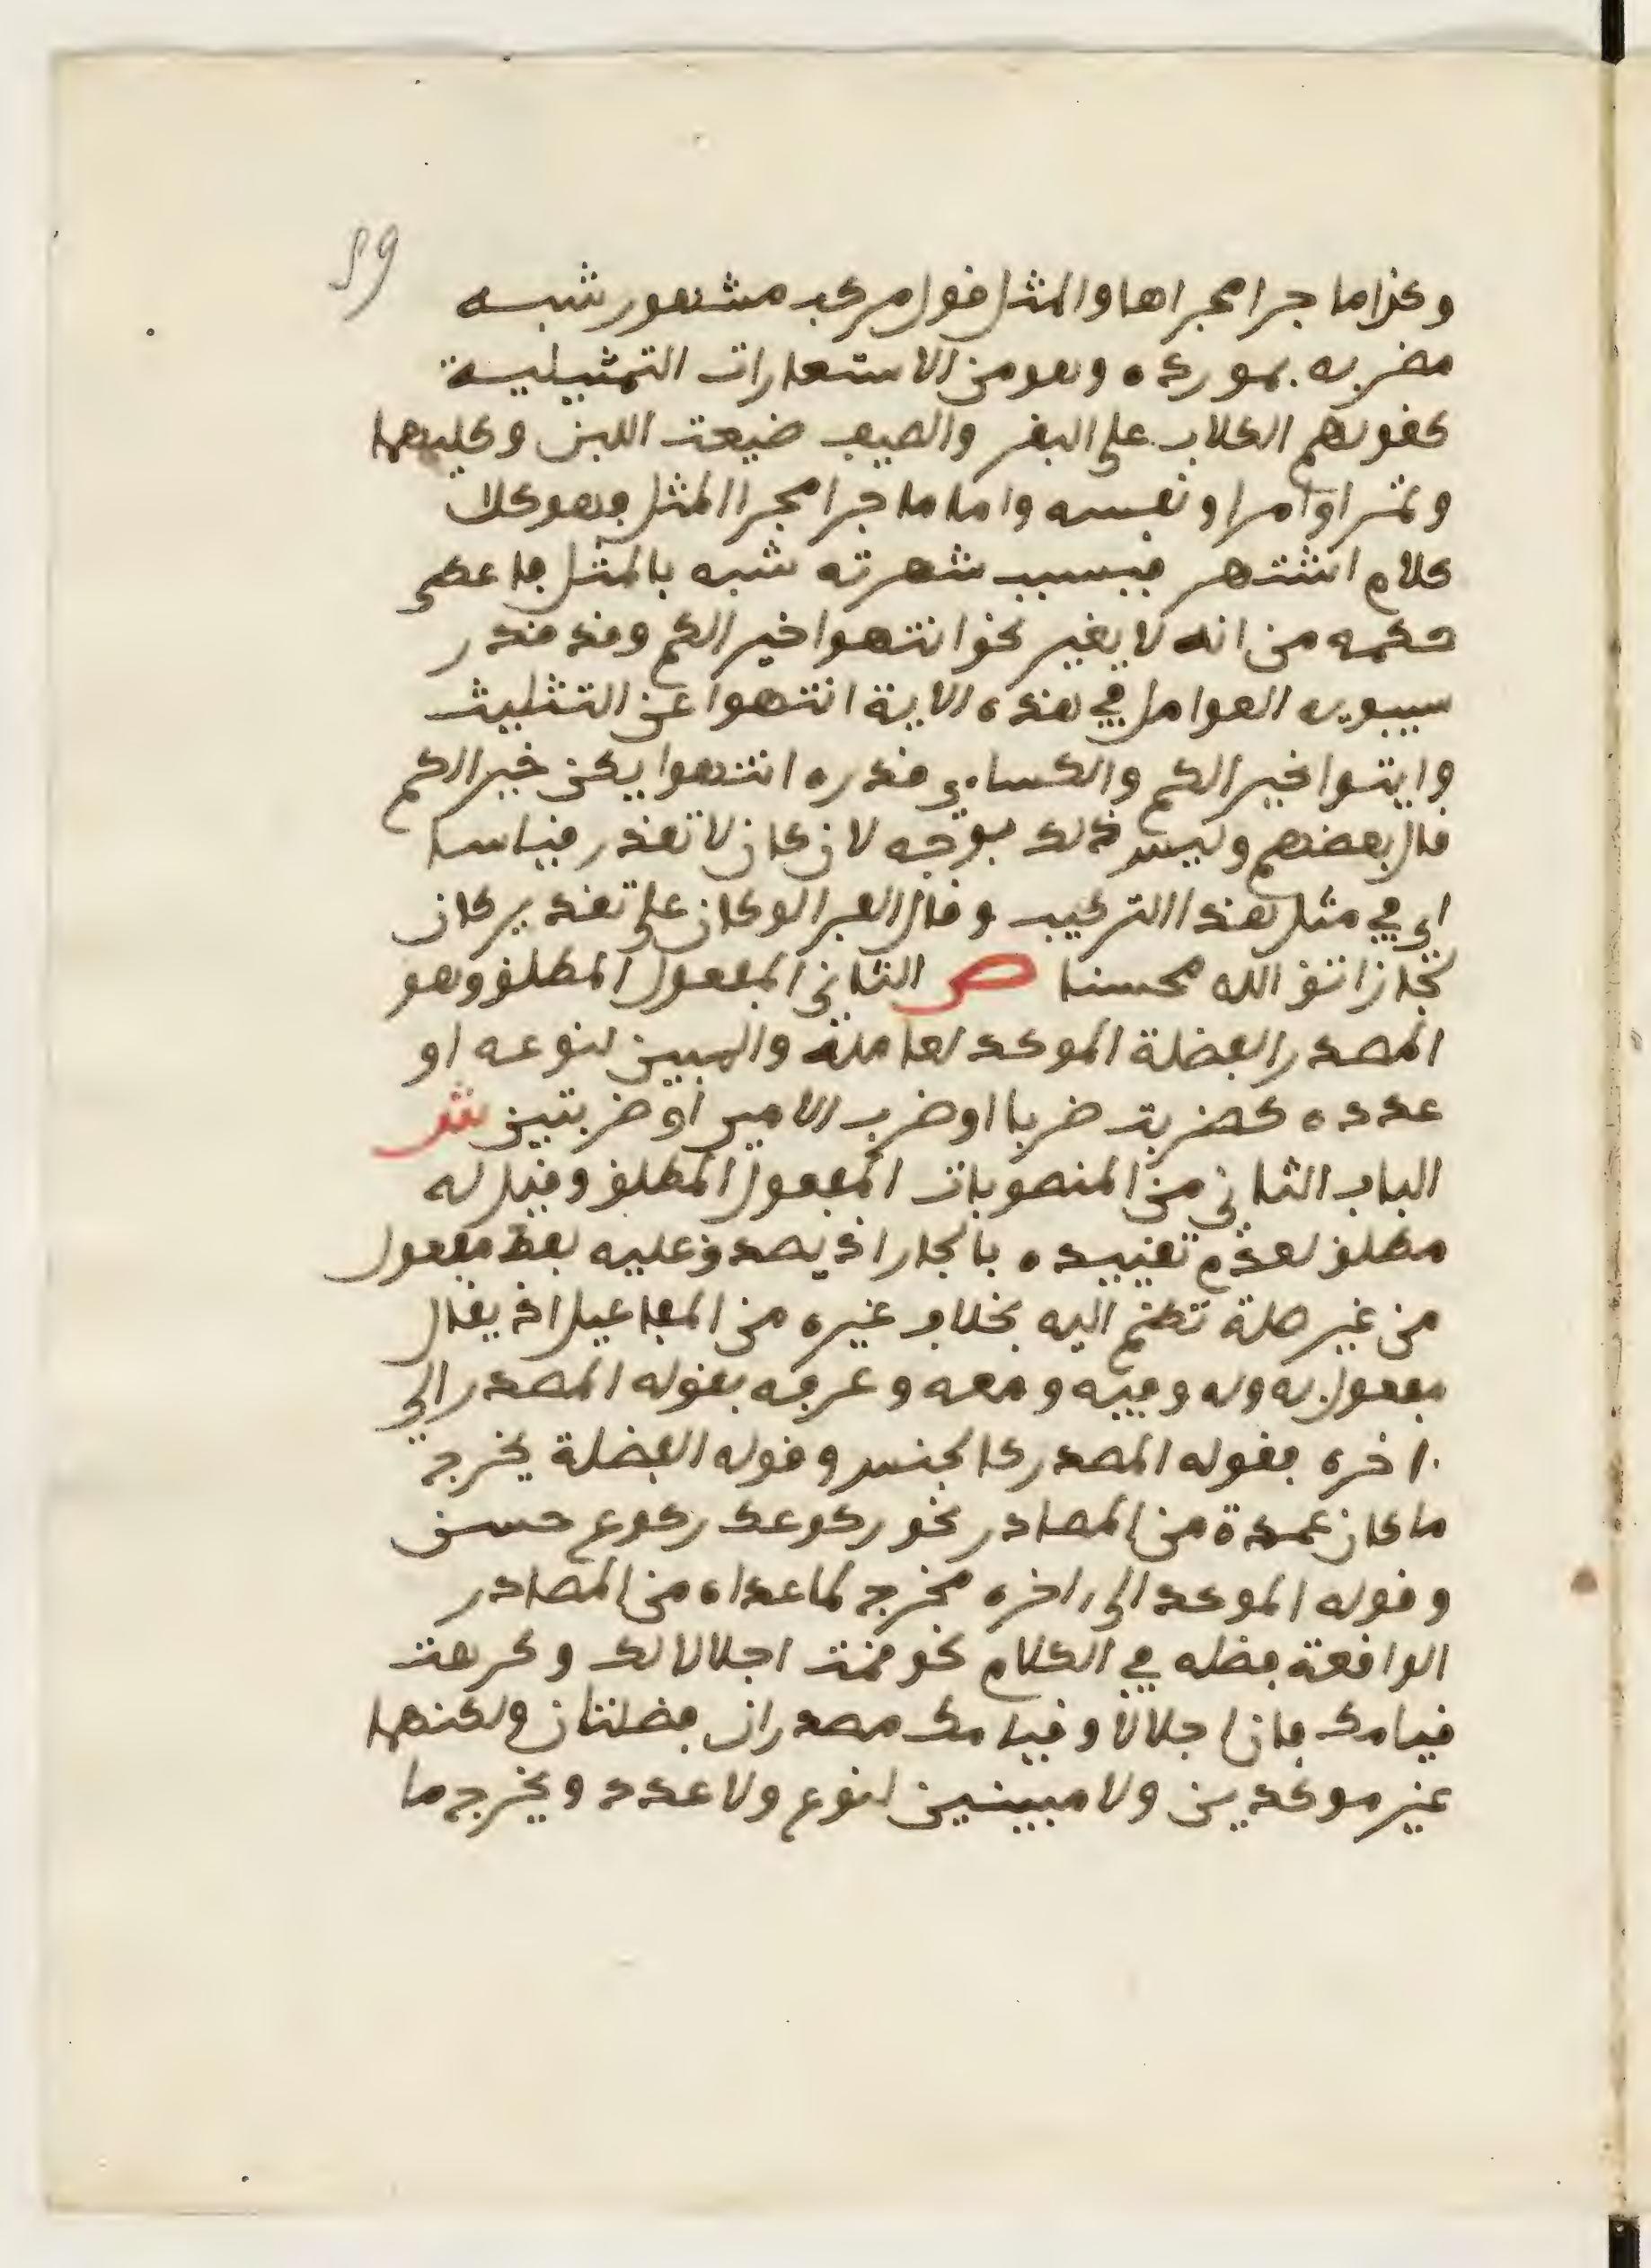 59
وكذا ما جرا مجراها والمثل قول مركب مشهور شبه
مضربه بمورده وهو من الاستعارات التمثيلية
كقولهم الكلاب على البقر والصيف ضيعت اللبن وكليهما
وتمرا وامرا ونفسه واما ما جرا مجرا المثل فهو كلا
كلام اشتهر فبسبب شهرته شبه بالمثل فاعطى
حكمه من انه لا يغير نحو انتهوا خيرا لكم وقد قدر
سيبويه العوامل في هذه الاية انتهوا عن التثليث
وايتوا خيرا لكم والكساءي قدره انتهوا يكن خيرا لكم
قال بعضهم وليس ذلك بوجه لان كان لا تقدر قياسا
اي في مثل هذا التركيب وقال الفرا لو كان على تقدير كان
لجاز اتق الله محسنا ص الثاني المفعول المطلق وهو
المصدر الفضلة الموكد لعامله والمبين لنوعه او
عدده كضربت ضربا او ضرب الامير او ضربتين ش
الباب الثاني من المنصوبات المفعول المطلق وقيل له
مطلق لعدم تقييده بالجار اذ يصدق عليه لفظ مفعول
من غير صلة تضم اليه بخلاف غيره من المفاعيل اذ يقال
مفعول به وله وفيه ومعه وعرفه بقوله المصدر الى
ءاخره فقوله المصدر كالجنس وقوله الفضلة يخرج
ما كان عمدة من المصادر نحو ركوعك ركوع حسن
وقوله الموكد الى ءاخره مخرج لما عداه من المصادر
الواقعة فضله في الكلام نحو قمت اجلالا لك وكرهت
قيامك فان اجلالا وقيامك مصدران فضلتان ولكنهما
غير موكدين ولا مبينين لنوع ولا عدد ويخرج ما